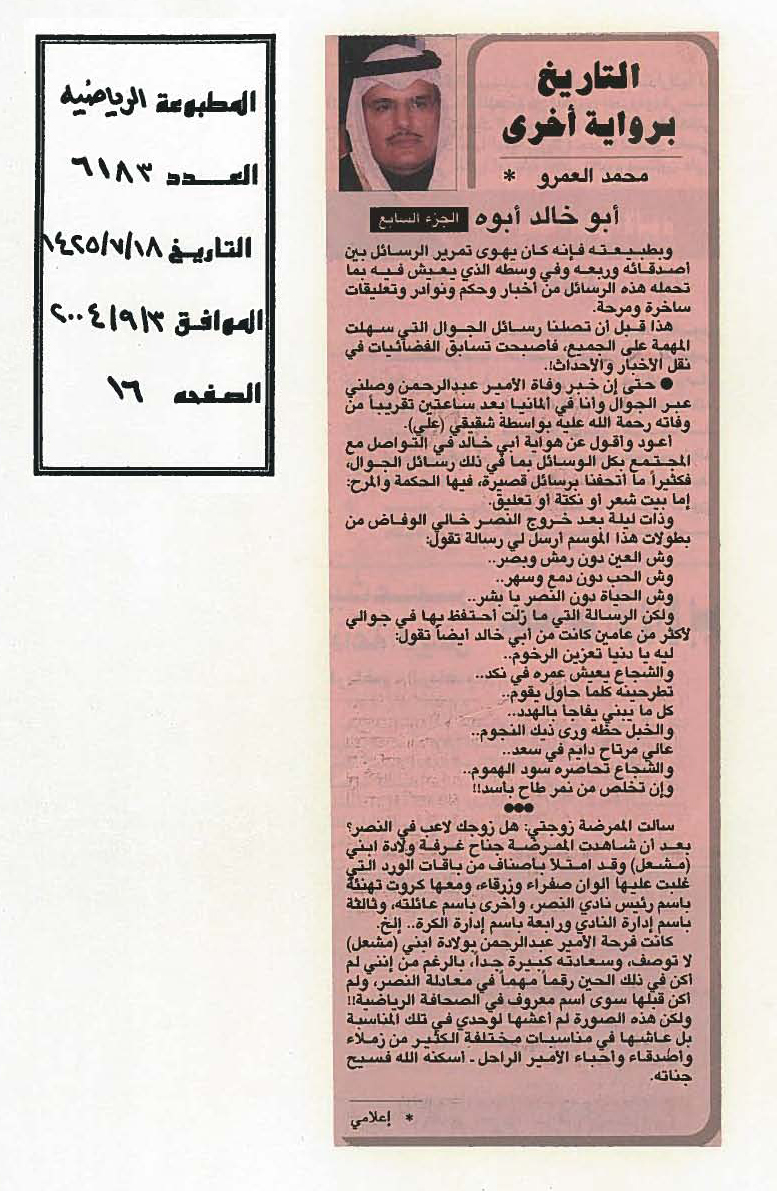 المطبوعة الرياضيه
العدد ٦١٨٣
التاريخ ١٤٢٥/٧/١٨
الموافق ٢٠٠٤/٩/٣
الصفحه ١٦
التاريخ
برواية أخرى
محمد العمرو *
أبو خالد أبوه الجزء السابع
وبطبيعته فإنه كان يهوى تمرير الرسائل بين
أصدقائه وربعه وفي وسطه الذي يعيش فيه بما
تحمله هذه الرسائل من أخبار وحكم ونوادر وتعليقات
ساخرة ومرحة.
هذا قبل أن تصلنا رسائل الجوال التي سهلت
المهمة على الجميع، فأصبحت تسابق الفضائيات في
نقل الأخبار والأحداث!.
● حتى إن خبر وفاة الأمير عبدالرحمن وصلني
عبر الجوال وأنا في ألمانيا بعد ساعتين تقريباً من
وفاته رحمة الله عليه بواسطة شقيقي (علي).
أعود وأقول عن هواية أبي خالد في التواصل مع
المجتمع بكل الوسائل بما في ذلك رسائل الجوال،
فكثيراً ما أتحفنا برسائل قصيرة، فيها الحكمة والمرح:
إما بيت شعر أو نكتة أو تعليق.
وذات ليلة بعد خروج النصر خالي الوفاض من
بطولات هذا الموسم أرسل لي رسالة تقول:
وش العين دون رمش وبصر..
وش الحب دون دمع وسهر..
وش الحياة دون النصر يا بشر..
ولكن الرسالة التي ما زلت أحتفظ بها في جوالي
لأكثر من عامين كانت من أبي خالد أيضاً تقول:
ليه يا دنيا تعزين الرخوم..
والشجاع يعيش عمره في نكد..
تطرحينه كلما حاول يقوم..
كل ما يبني يفاجأ بالهدد..
والخبل حظه ورى ذيك النجوم..
عالي مرتاح دايم في سعد..
والشجاع تحاصره سود الهموم..
وإن تخلص من نمر طاح بأسد!!
●●●
سالت الممرضة زوجتي: هل زوجك لاعب في النصر؟
بعد أن شاهدت الممرضة جناح غرفة ولادة ابني
(مشعل) وقد امتلأ بأصناف من باقات الورد التي
غلبت عليها ألوان صفراء وزرقاء، ومعها كروت تهنئة
باسم رئيس نادي النصر، وأخرى باسم عائلته، وثالثة
باسم إدارة النادي ورابعة باسم إدارة الكرة.. إلخ.
كانت فرحة الأمير عبدالرحمن بولادة ابني (مشعل)
لا توصف، وسعادته كبيرة جداً، بالرغم من إنني لم
أكن في ذلك الحين رقماً مهماً في معادلة النصر، ولم
أكن قبلها سوى اسم معروف في الصحافة الرياضية!!
ولكن هذه الصورة لم أعشها لوحدي في تلك المناسبة
بل عاشها في مناسبات مختلفة الكثير من زملاء
وأصدقاء وأحباء الأمير الراحل ـ أسكنه الله فسيح
جناته.
* إعلامي